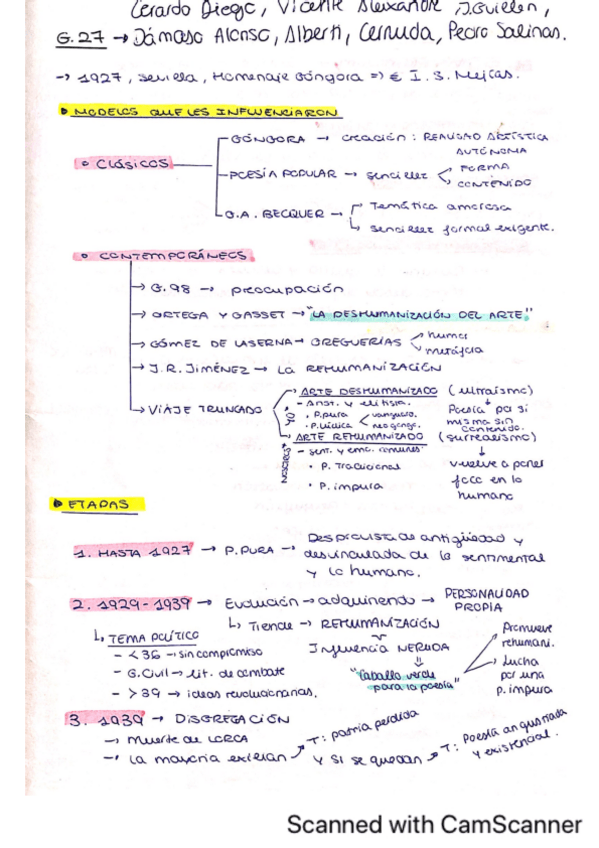 Gerardo Diego, Vicente Aleixandre, J. Guillén,
G.27 → Dámaso Alonso, Alberti, Cernuda, Pedro Salinas.
→ 1927, Sevilla, Homenaje Góngora => € I. S. Mejías.
MODELOS QUE LES INFLUENCIARON
CLÁSICOS
GÓNGORA → creación: REALIDAD ARTÍSTICA
AUTÓNOMA
POESÍA POPULAR → sencillez < FORMA
CONTENIDO
G.A. BECQUER → Temática amorosa
sencillez formal exigente.
CONTEMPORÁNEOS
→ G.98 → preocupación
→ ORTEGA Y GASSET → "LA DESHUMANIZACIÓN DEL ARTE"
→ GÓMEZ DE LA SERNA → GREGUERÍAS humor
metáfora
→ J.R. JIMÉNEZ → LA REHUMANIZACIÓN
→ VIAJE TRUNCADO
YO
ARTE DESHUMANIZADO (ultraísmo)
- Arist. y elitista.
Poesía por sí
misma sin
contenido.
· P. pura
· P. lúdica < vanguar.
neogong.
NOSOTROS
ARTE REHUMANIZADO (surrealismo)
- sent. y emo. comunes
· P. Tradicional
· P. impura
vuelve a poner
foco en lo
humano
ETAPAS
1. HASTA 1927 → P. PURA → Desprovista de antigüedad y
desvinculada de lo sentimental
y lo humano.
2. 1929-1939 → Evolución → adquiriendo → PERSONALIDAD
PROPIA
↳ Tiende → REHUMANIZACIÓN
Influencia NERUDA
"Caballo verde
para la poesía"
Promueve
rehumani.
Lucha
por una
p. impura
↳ TEMA POLÍTICO
- <36 → sin compromiso
- G. Civil → lit. de combate
- >39 → ideas revolucionarias.
3. 1939 → DISGREGACIÓN
→ Muerte de LORCA
→ La mayoría exilian → T: patria perdida
Y SI se quedan → T: Poesía angustiada
y existencial.
Scanned with CamScanner